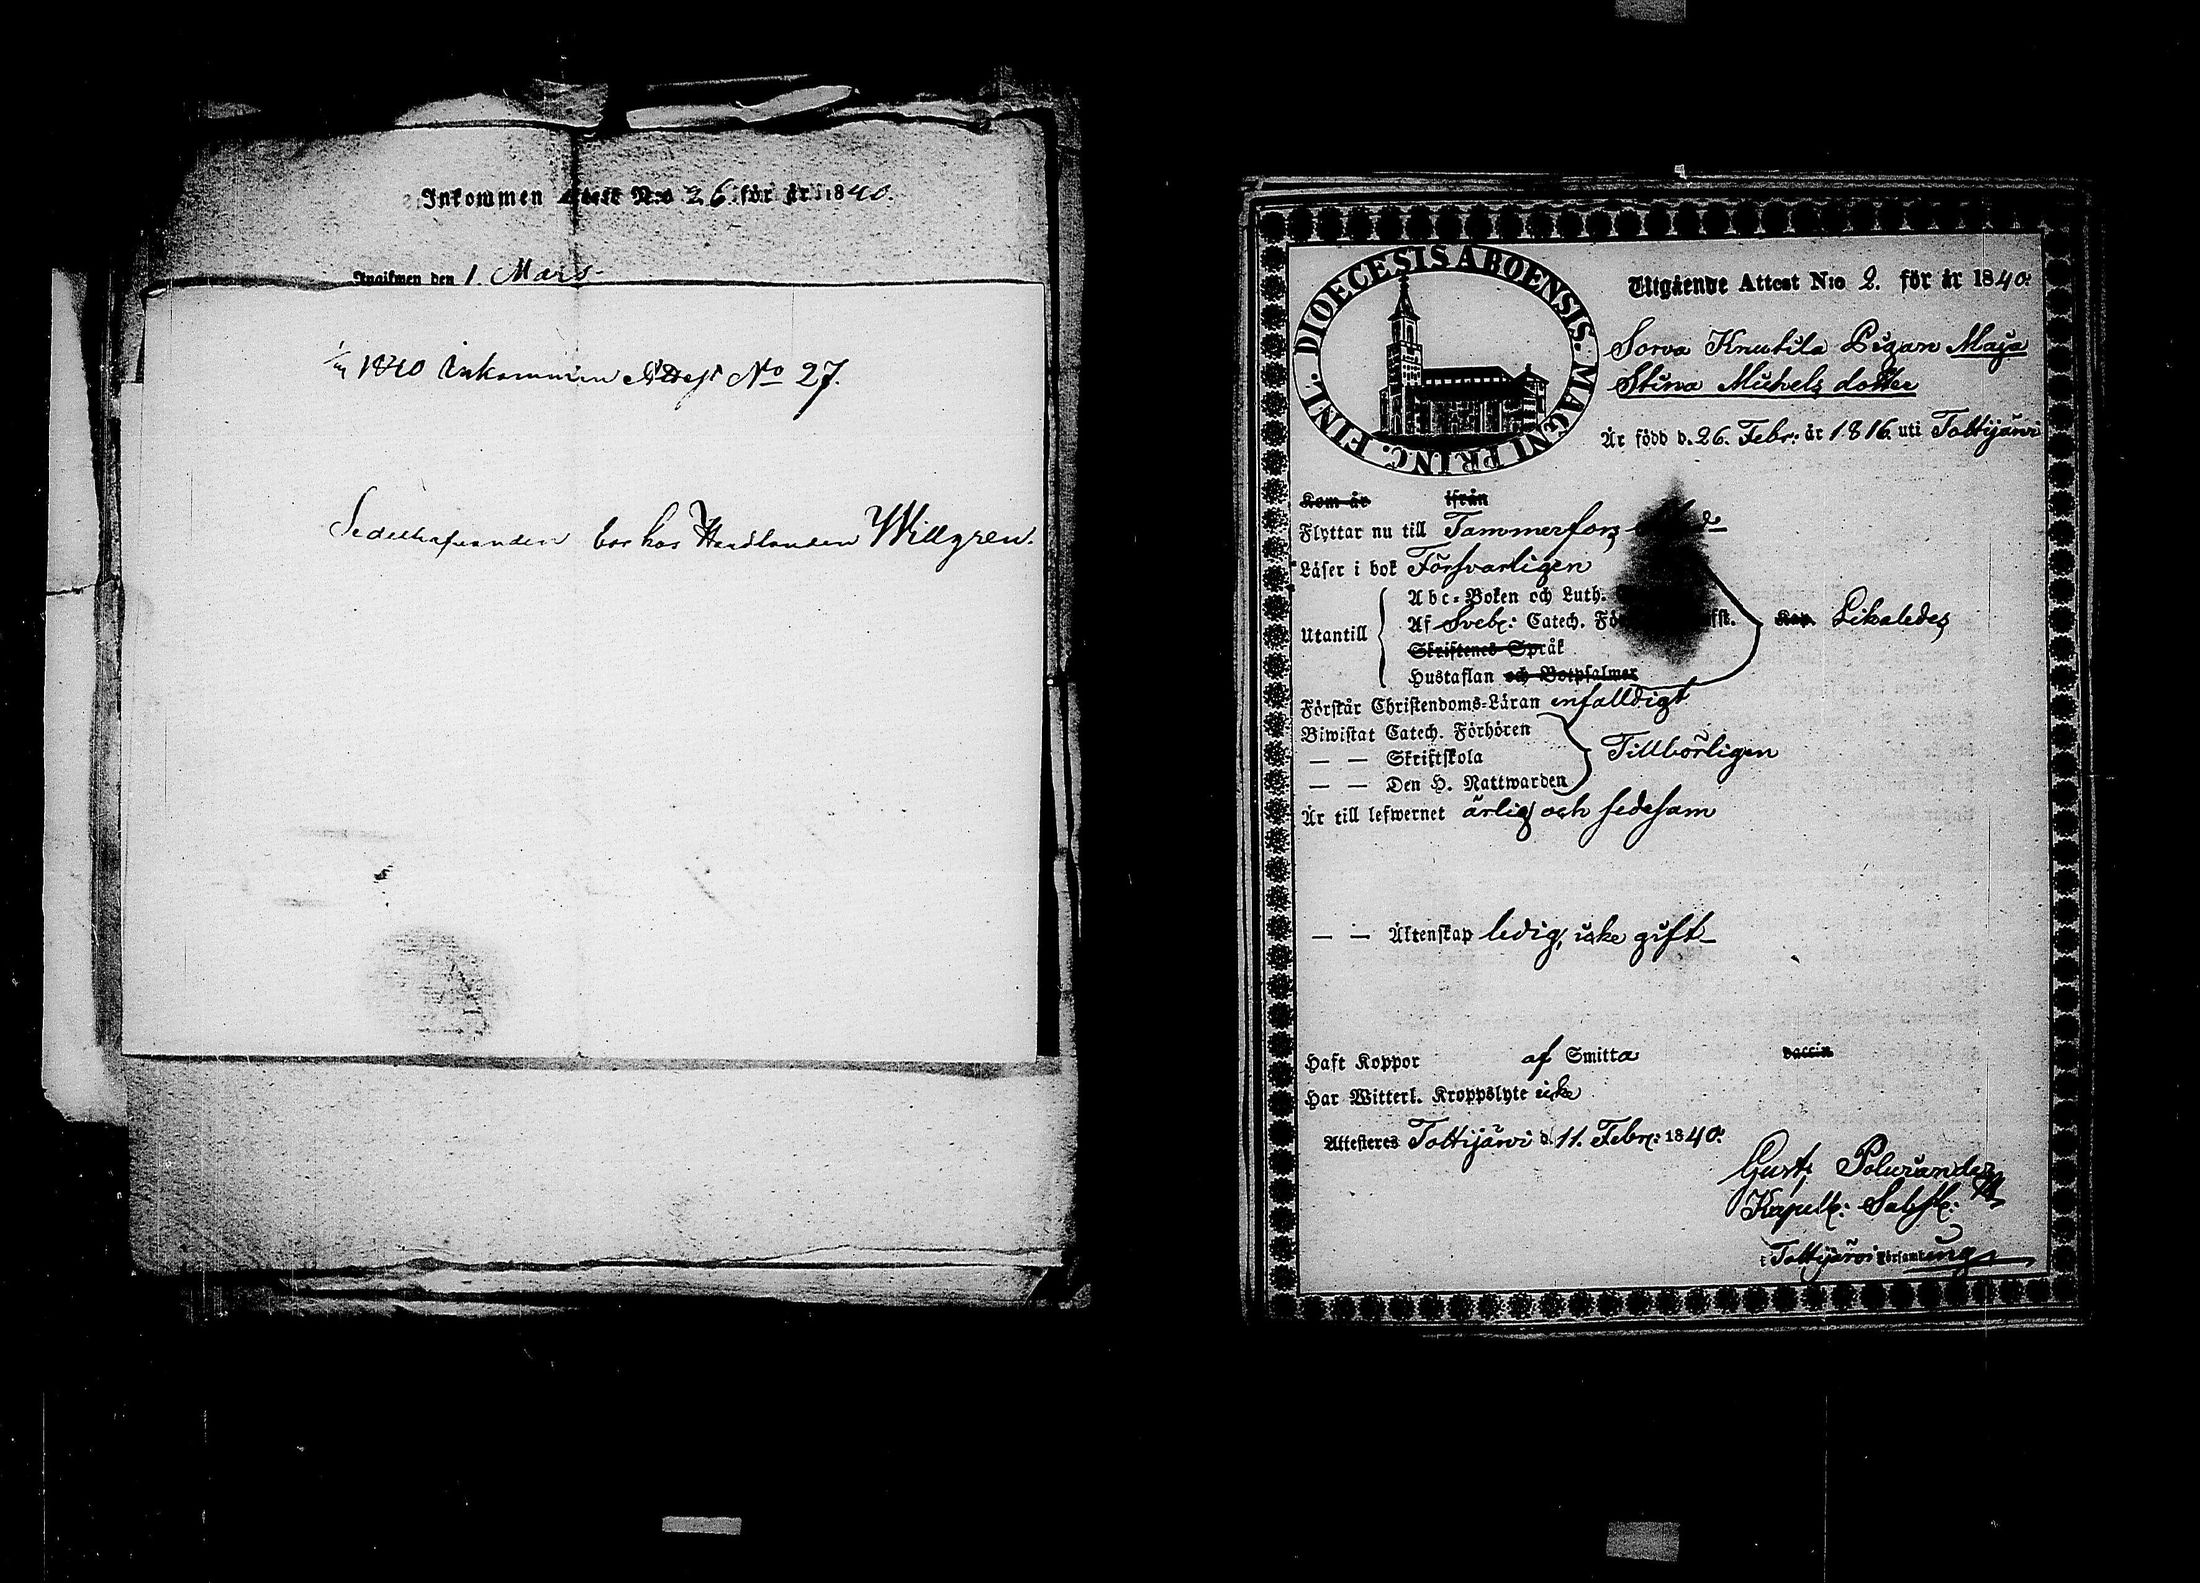 Inkommen Attest N:o 26 för år 1840.
Angifwen den 1. Mars
1840 Inkommen Attest No 27.
Sedelhafvanden bor hos Handlanden Willgren.
DIOECESIS ABOENSIS. MAGNI PRINC. FINL.
Utgående Attest N:o 2. för år 1840.
Sorva Knutila Pigan Maja
Stina Michels dotter
Är född d. 26. Febr: år 1816. uti Tottijärvi
Kom år ifrån
Flyttar nu till Tammerfors
Läser i bok Försvarligen
Abc-Boken och Luth.
Utantill Af Sveb: Catech. Likaledes
Skriftenes Språk
Hustaflan och Botpsalmer
Förstår Christendoms-Läran enfalldigt
Biwistat Catech. Förhören
— — Skriftskola Tillbörligen
— — Den H. Nattwarden
Är till lefwernet ärlig och sedesam
— — Äktenskap ledig, icke gift
Haft Koppor af Smitta vaccin
Har Witterl. Kroppslyte icke
Attesteres Tottijärvi d. 11. Febr: 1840.
Gust.
Kapell:
i Tottijärvi Församling